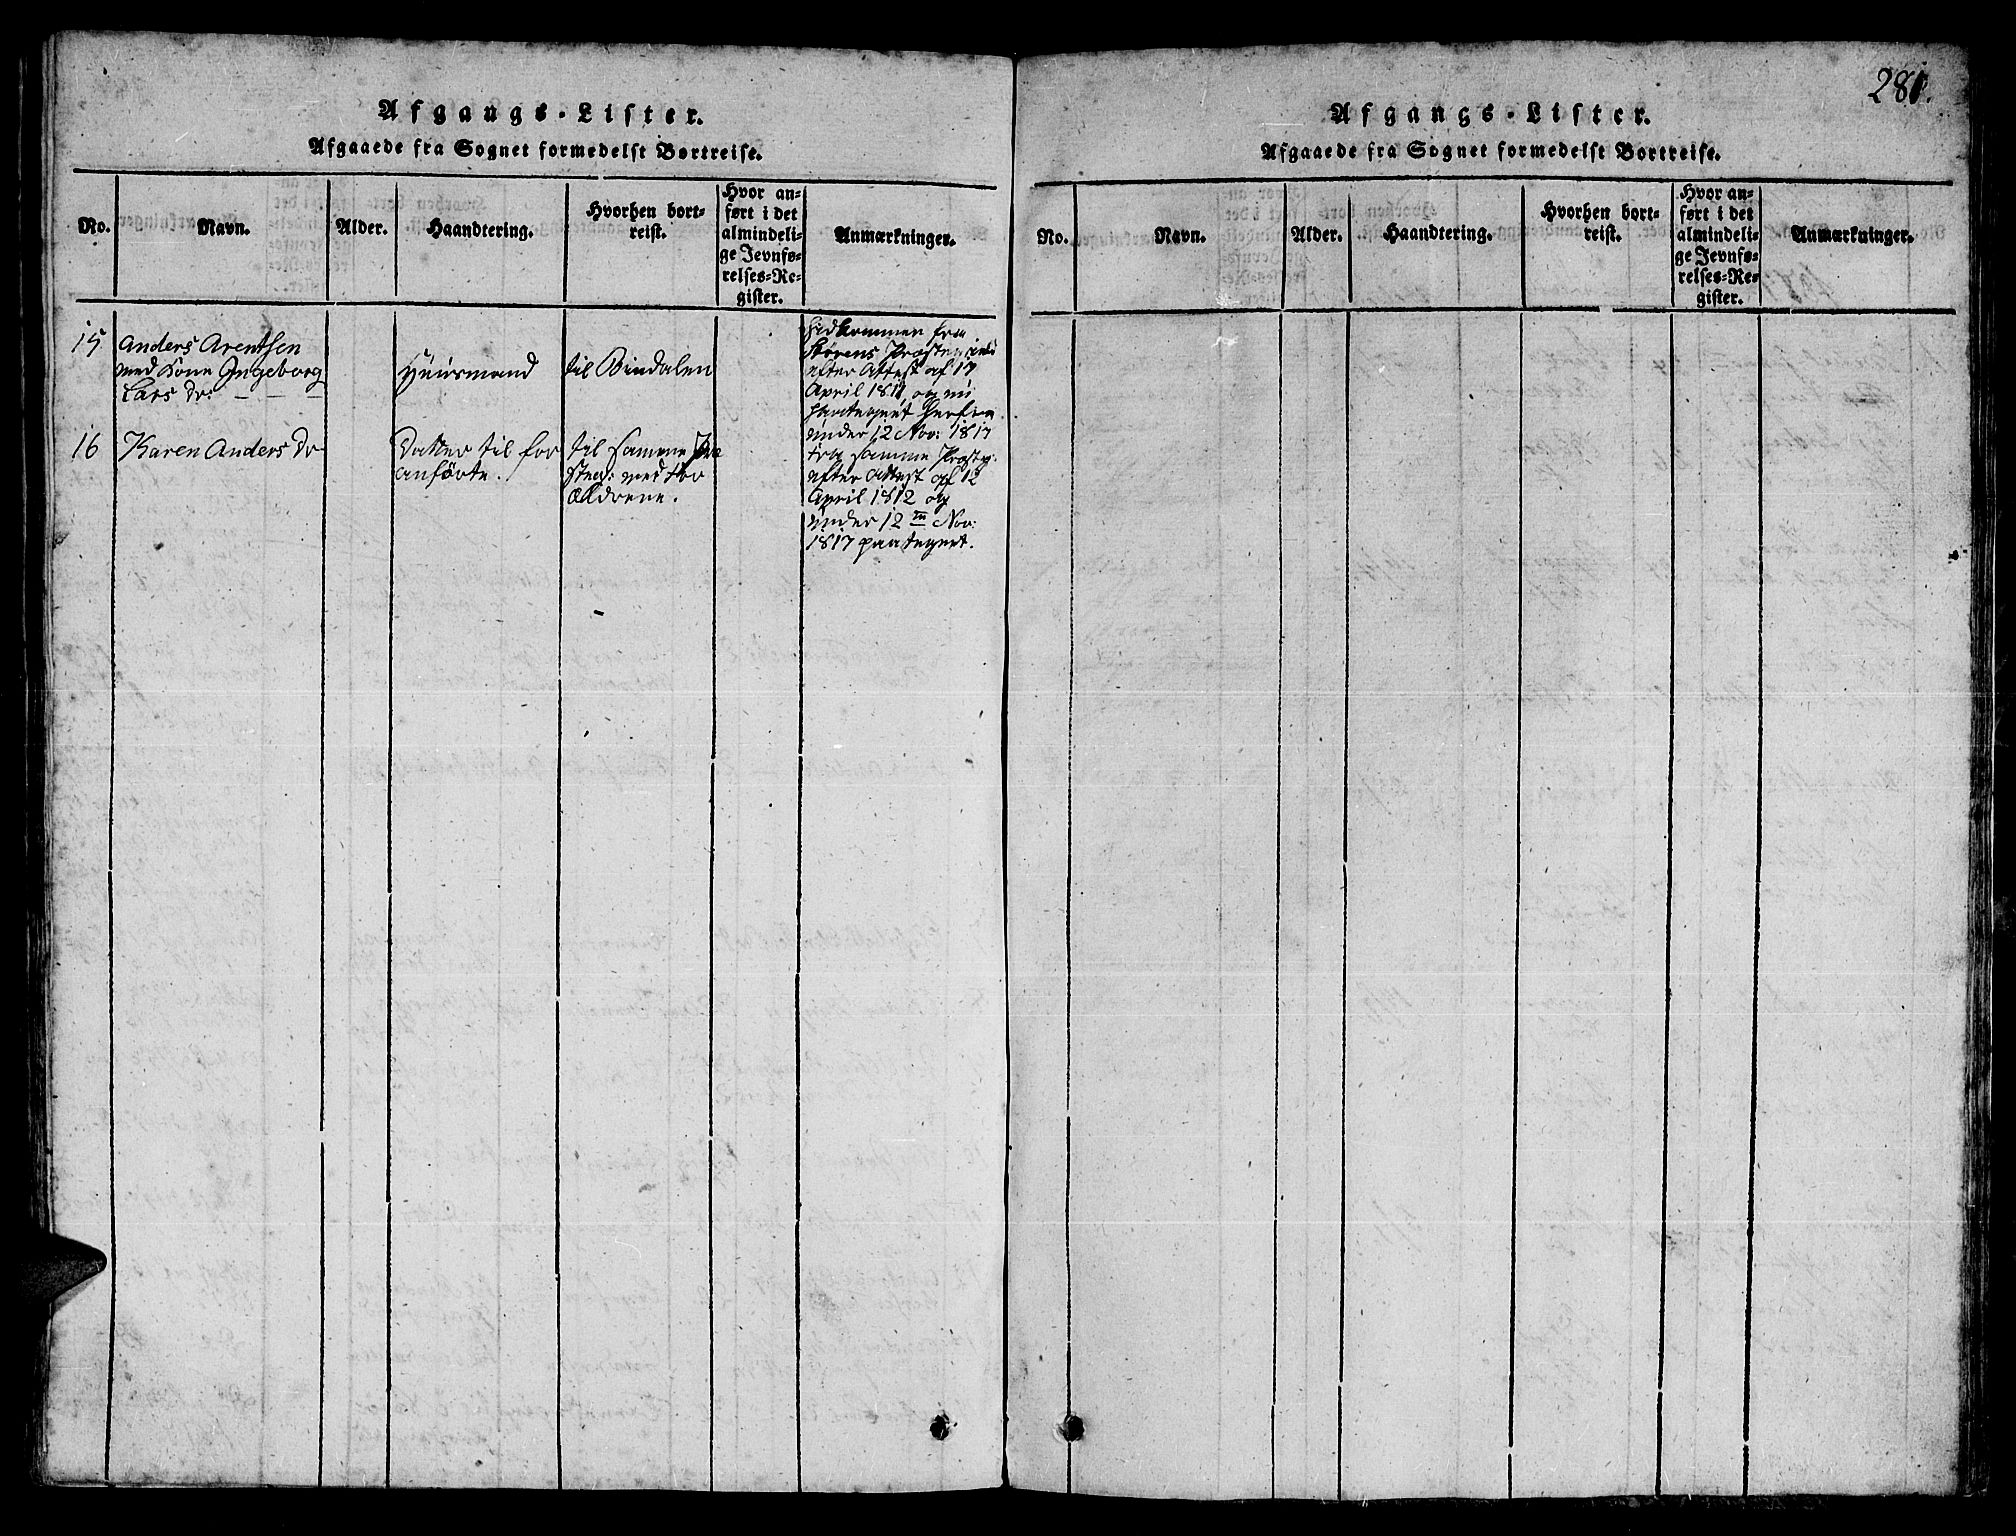 Afgangs-Lister.
Afgaaede fra Sognet formedelst Bortreise.
No.
Navn.
Alder.
Haandtering.
Hvorhen bort-
reist.
Hvor an-
ført i det
almindeli-
ge Jevnfø-
relses-Re-
gister.
Anmærkninger.
15
Anders Arentsen
med Kone Ingeborg
Lars Dr:
Huusmand
til Bindalen
Hidkommen fra
Størens
efter Attest af 17
April 1811, og nu
paategnet herfra
under 12 Nov: 1817
16
Karen Anders Dr
Datter til for
anførte.
til samme
sted: med For
ældrene.
fra samme Præstg:
efter Attest af 12
April 1812 og
under 12 Nov:
1817 paategnet.
281.
Afgangs-Lister.
Afgaaede fra Sognet formedelst Bortreise.
No.
Navn.
Alder.
Haandtering.
Hvorhen bort-
reist.
Hvor an-
ført i det
almindeli-
ge Jevnfø-
relses-Re-
gister.
Anmærkninger.